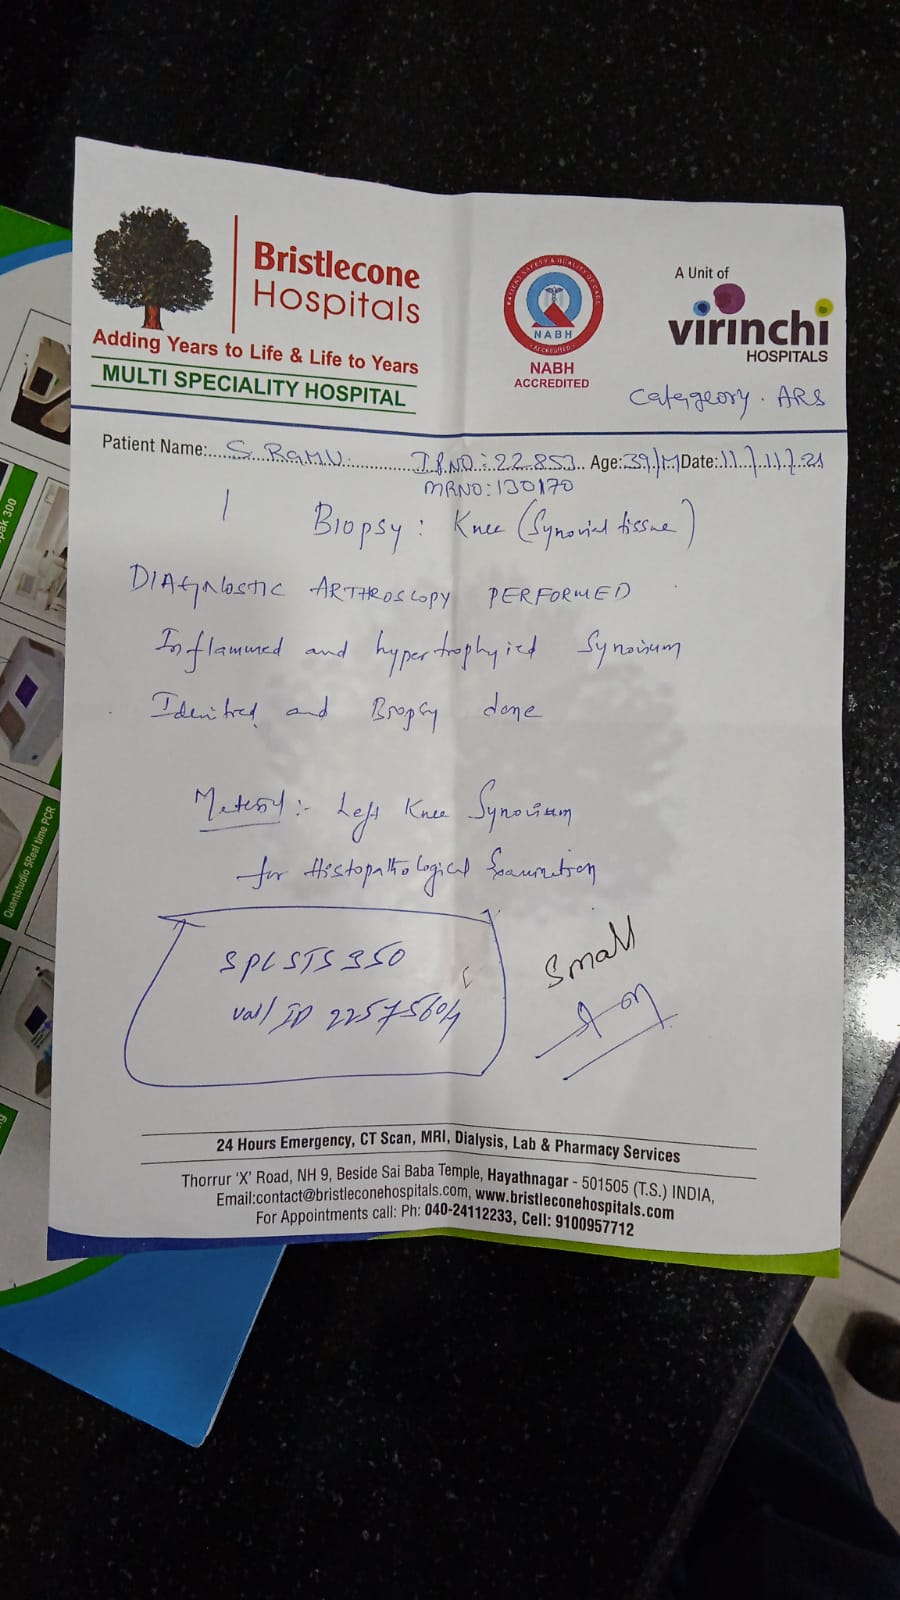 Bristlecone
Hospitals
Adding Years to Life & Life to Years
MULTI SPECIALITY HOSPITAL
PATIENT SAFETY & QUALITY OF CARE
NABH
ACCREDITED
NABH
ACCREDITED
A Unit of
virinchi
HOSPITALS
Categeory. ARS
Patient Name: S RAMU. IP.NO: 22853 Age: 39/M Date: 11/11/21
MRNO: 130170
Biopsy: Knee (Synovial tissue)
DIAGNOSTIC ARTHROSCOPY PERFORMED
Inflammed and hypertrophyied Synovium
and Biopsy done
Left Knee Synovium
for Histopathological Examination
SPLSTS350
ID
Small
24 Hours Emergency, CT Scan, MRI, Dialysis, Lab & Pharmacy Services
Thorrur 'X' Road, NH 9, Beside Sai Baba Temple, Hayathnagar - 501505 (T.S.) INDIA,
Email:contact@bristleconehospitals.com, www.bristleconehospitals.com
For Appointments call: Ph: 040-24112233, Cell: 9100957712
pak 300
Quantstudio 5Real time PCR